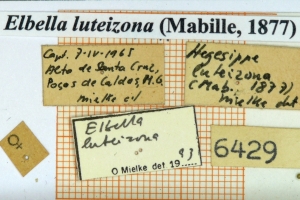 Elbella luteizona (Mabille, 1877)
Capt. 7-IV-1965
Alto de Santa Cruz,
Poços de Caldas, M.G.
Mielke col
Hegesippe
luteizona
(Mab. 1877)
Mielke det
♀
Elbella
luteizona
93
O Mielke det. 19......
6429